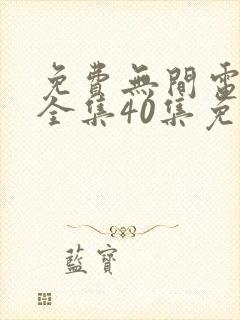 免費無間電
全集40集免
藍寶